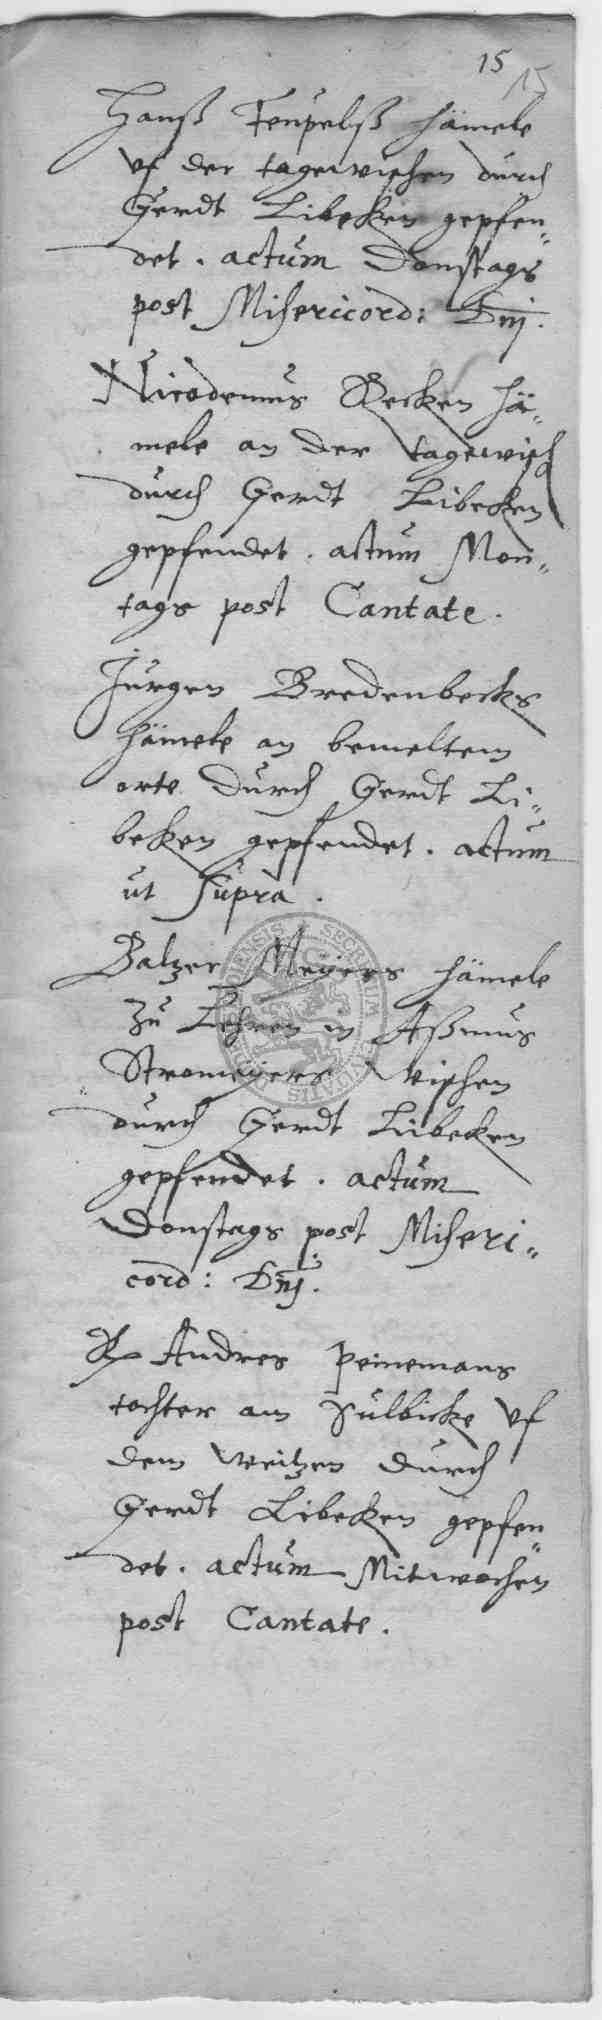 15
15
Hanß Teupelß hämele
vf der tagewischen durch
Gerdt Libeken gepfen„
det. actum Donstags
post Misericord: Dnj.
Nicodemus Becken hä„
mele an der tagewisch
durch Gerdt Libecken
gepfendet. actum Mon„
tags post Cantate.
Jurgen Bredenbecks
hämele an bemeltem
orte durch Gerdt Li„
beken gepfendet. actum
ut supra.
Baltzer Meyers hämele
zu Lehren in Aßmus
Stromeyers wischen
durch Gerdt Libecken
gepfendet. actum
Donstags post Miseri„
cord: Dnj.
Andres Peinemans
tochter am Sülbicke vf
dem weitzen durch
Gerdt Libecken gepfen„
det. actum Mitwochen
post Cantate.